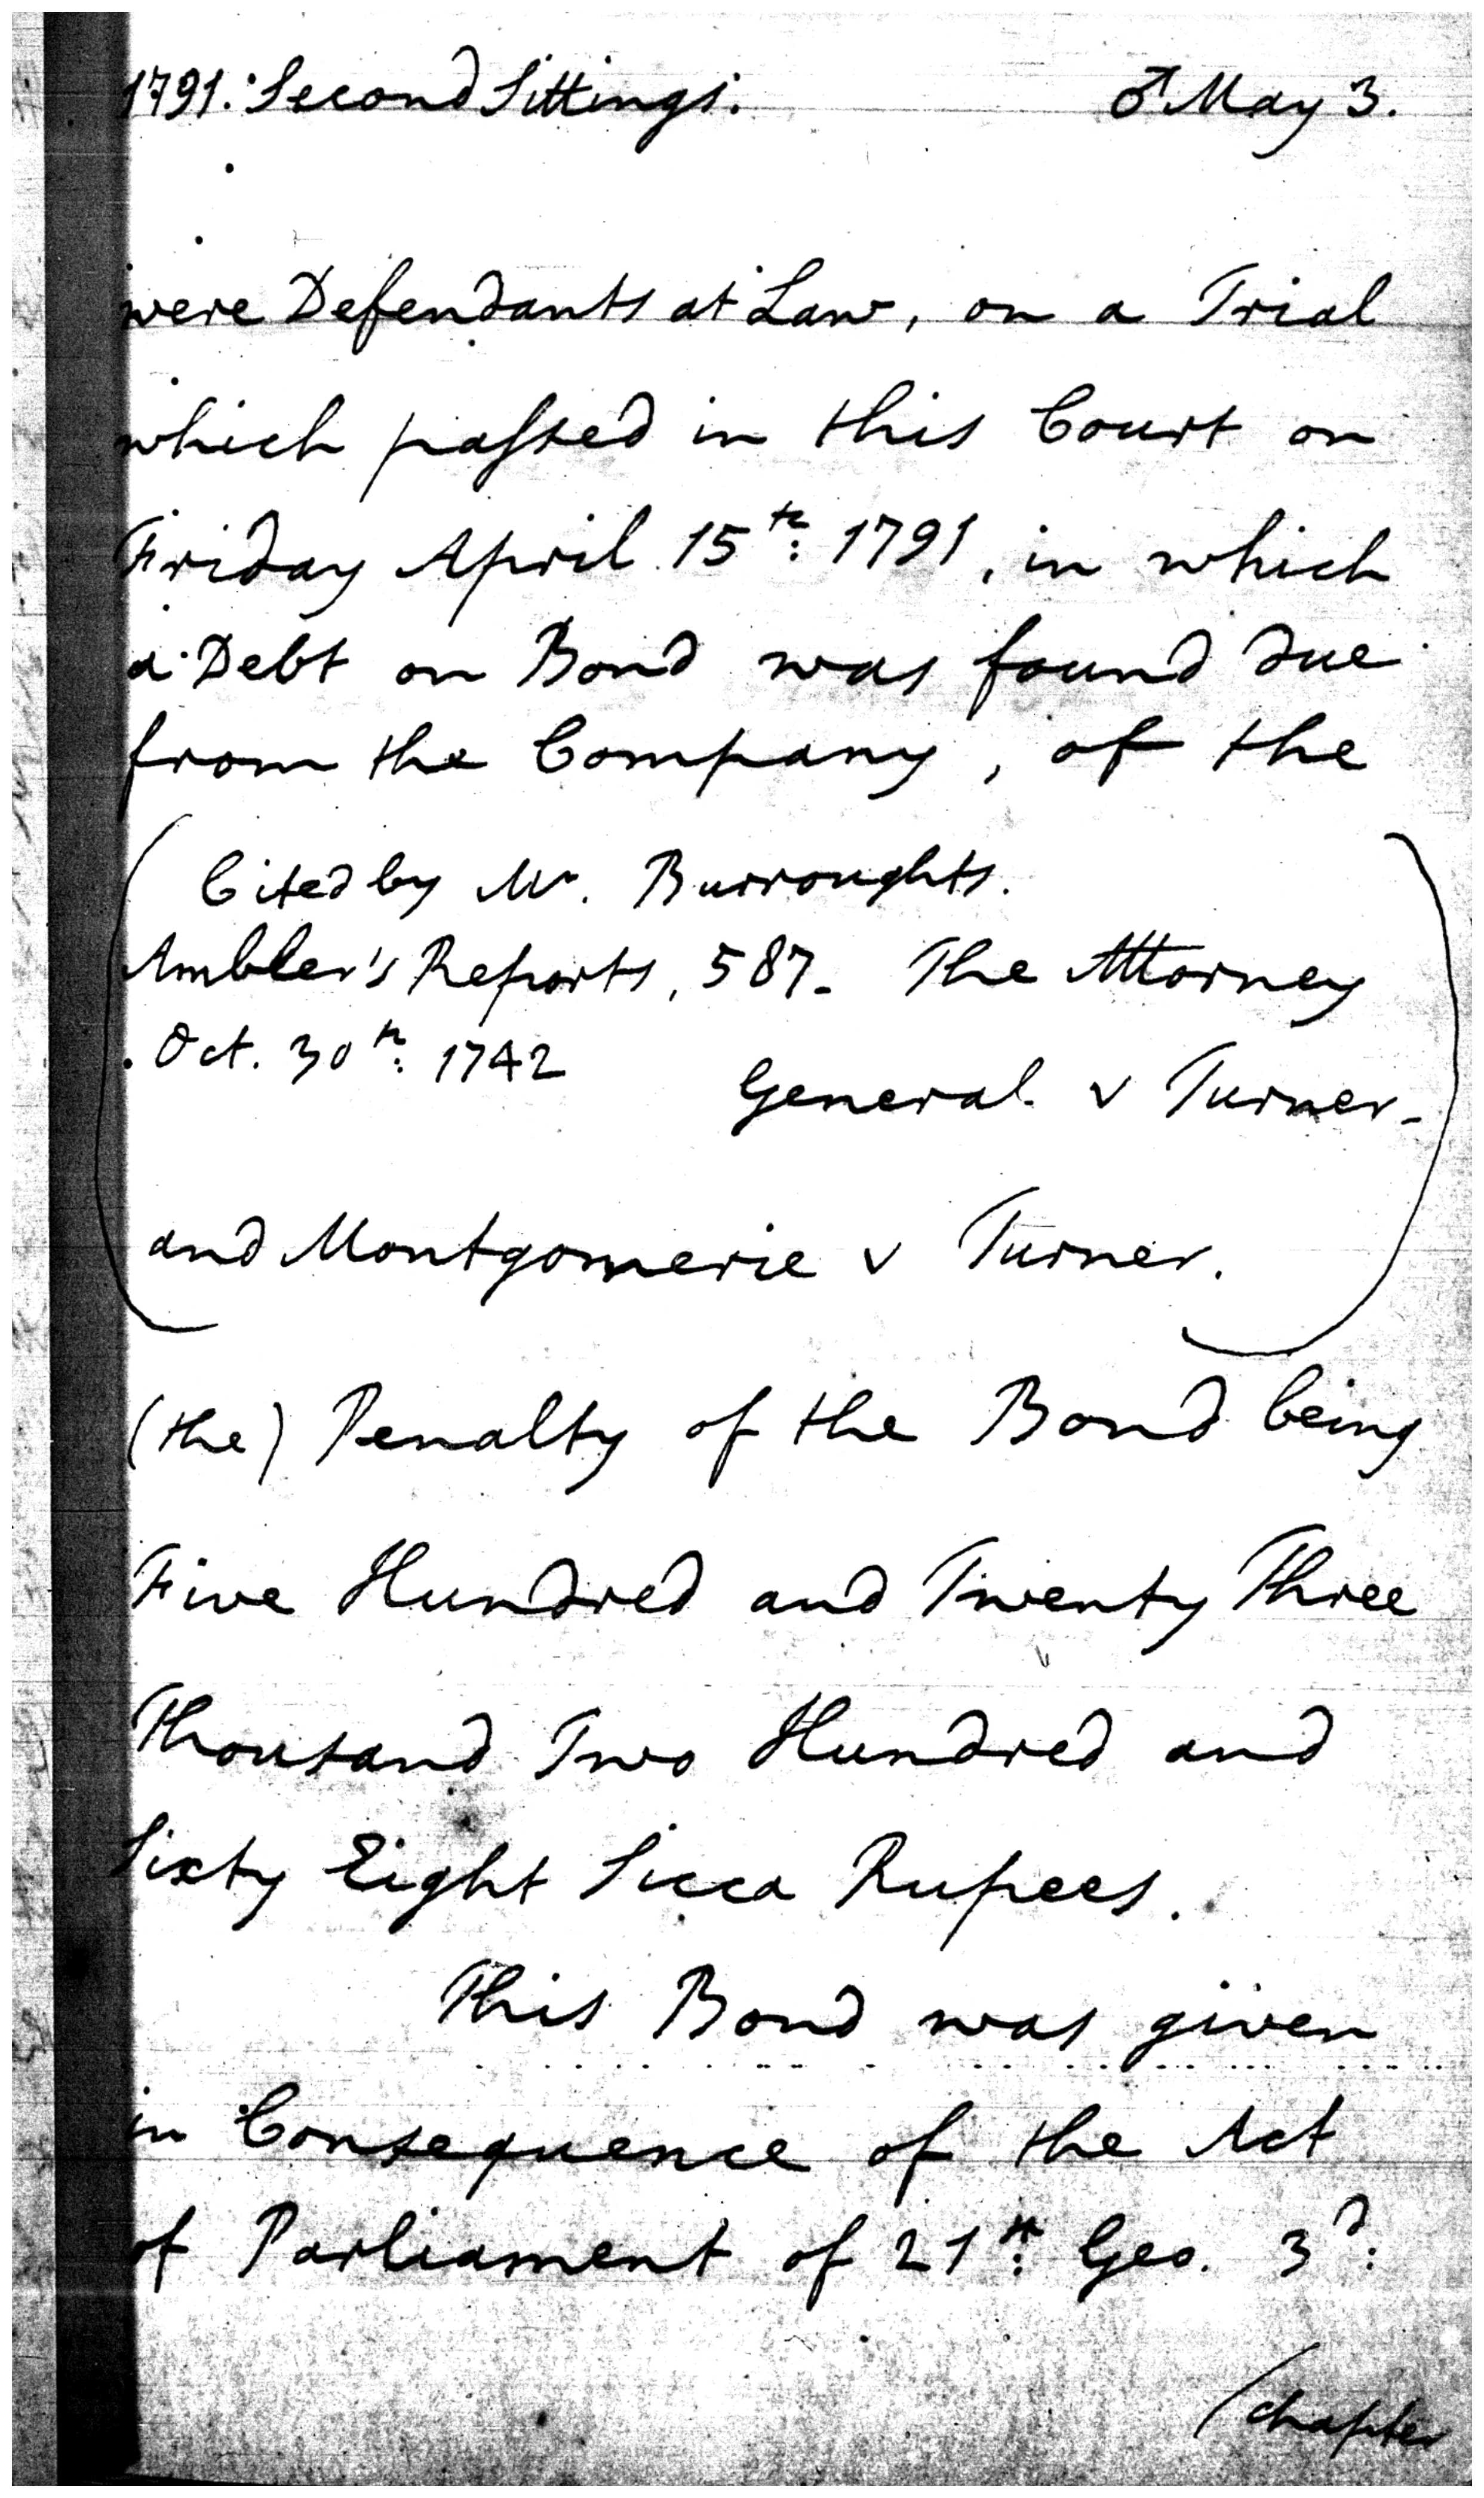 1791. Second Sittings. ♂ May 3.
were Defendants at Law, on a Trial
which paſsed in this Court on
Friday April 15th: 1791, in which
a Debt on Bond was found due
from the Company, of the
( Cited by Mr. Burroughts.
Ambler's Reports, 587. The Attorney
Oct. 30th: 1742
General v Turner.
and Montgomerie v Turner. )
(the) Penalty of the Bond being
Five Hundred and Twenty Three
Thousand Two Hundred and
Sixty Eight Sicca Rupees.
This Bond was given
in Consequence of the Act
of Parliament of 21st: Geo. 3d:
(chapter